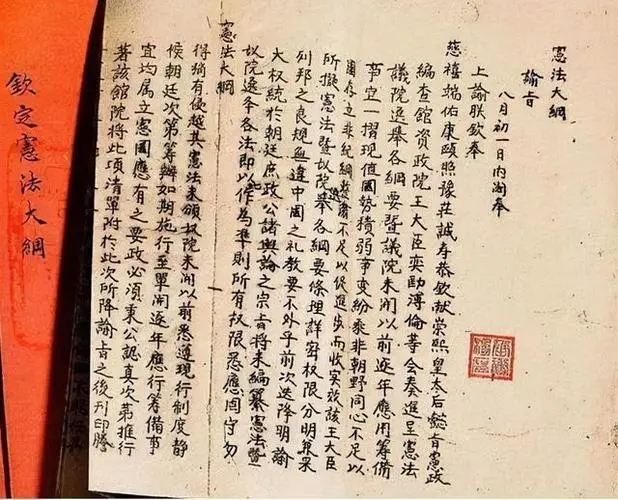 憲法大綱
諭旨
八月初一日内閣奉
上諭朕欽奉
慈禧端佑康頤昭豫莊誠壽恭欽献崇熙皇太后懿旨憲政
編查館資政院王大臣奕劻溥倫等会奏進呈憲法
議院選舉各綱要暨議院未開以前逐年應用籌備
事宜一摺現值國勢積弱事变紛乘非朝野同心不足以
圖存立非紀綱整肅不足以促進步而收实效該王大臣
所擬憲法暨议院選舉各綱要條理詳密权限分明兼采
列邦之良規無違中國之礼教要不外乎前次迭降明諭
大权統於朝廷庶政公諸輿論之宗旨將来編纂憲法暨
议院选举各法即以作為準則所有权限悉應固守勿
憲法大綱
得稍有侵越其憲法未頒议院未開以前悉遵現行制度静
候朝廷次第籌辦如期施行至單開逐年應行籌備事
宜均属立憲國應有之要政必須秉公認真次第推行
著該館院將此項清單附於此次所降諭旨之後刊印謄
欽定憲法大綱